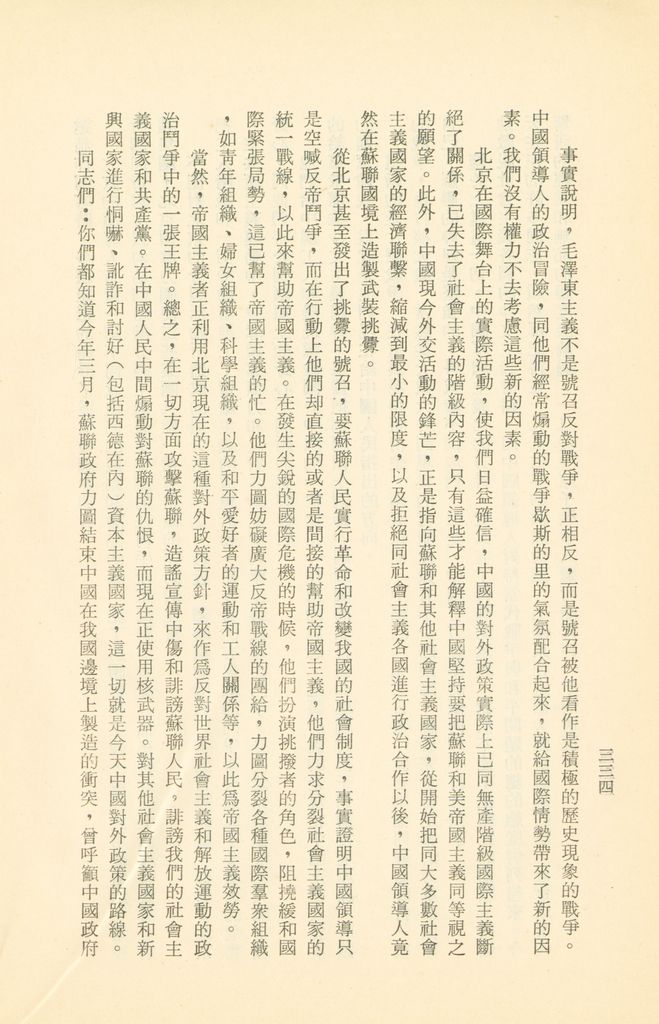 事實說明，毛澤東主義不是號召反對戰爭，正相反，而是號召被他看作是積極的歷史現象的戰爭。
中國領導人的政治冒險，同他們經常煽動的戰爭歇斯的里的氣氛配合起來，就給國際情勢帶來了新的因
素。我們沒有權力不去考慮這些新的因素。
北京在國際舞台上的實際活動，使我們日益確信，中國的對外政策實際上已同無產階級國際主義斷
絕了關係，已失去了社會主義的階級內容，只有這些才能解釋中國堅持要把蘇聯和美帝國主義同等視之
的願望。此外，中國現今外交活動的鋒芒，正是指向蘇聯和其他社會主義國家，從開始把同大多數社會
主義國家的經濟聯繫，縮減到最小的限度，以及拒絕同社會主義各國進行政治合作以後，中國領導人竟
然在蘇聯國境上造製武裝挑釁。
從北京甚至發出了挑釁的號召，要蘇聯人民實行革命和改變我國的社會制度，事實證明中國領導只
是空喊反帝鬥爭，而在行動上他們却直接的或者是間接的幫助帝國主義，他們力求分裂社會主義國家的
統一戰線，以此來幫助帝國主義。在發生尖銳的國際危機的時候，他們扮演挑撥者的角色，阻撓緩和國
際緊張局勢，這已幫了帝國主義的忙。他們力圖妨礙廣大反帝戰線的團給，力圖分裂各種國際羣衆組織
，如靑年組織、婦女組織、科學組織，以及和平愛好者的運動和工人關係等，以此爲帝國主義效勞。
當然，帝國主義者正利用北京現在的這種對外政策方針，來作爲反對世界社會主義和解放運動的政
治鬥爭中的一張王牌。總之，在一切方面攻擊蘇聯，造謠宣傳中傷和誹謗蘇聯人民，誹謗我們的社會主
義國家和共產黨。在中國人民中間煽動對蘇聯的仇恨，而現在正使用核武器。對其他社會主義國家和新
興國家進行恫嚇、訛詐和討好（包括西德在內）資本主義國家，這一切就是今天中國對外政策的路線。
同志們：你們都知道今年三月，蘇聯政府力圖結束中國在我國邊境上製造的衝突，曾呼籲中國政府
三三四